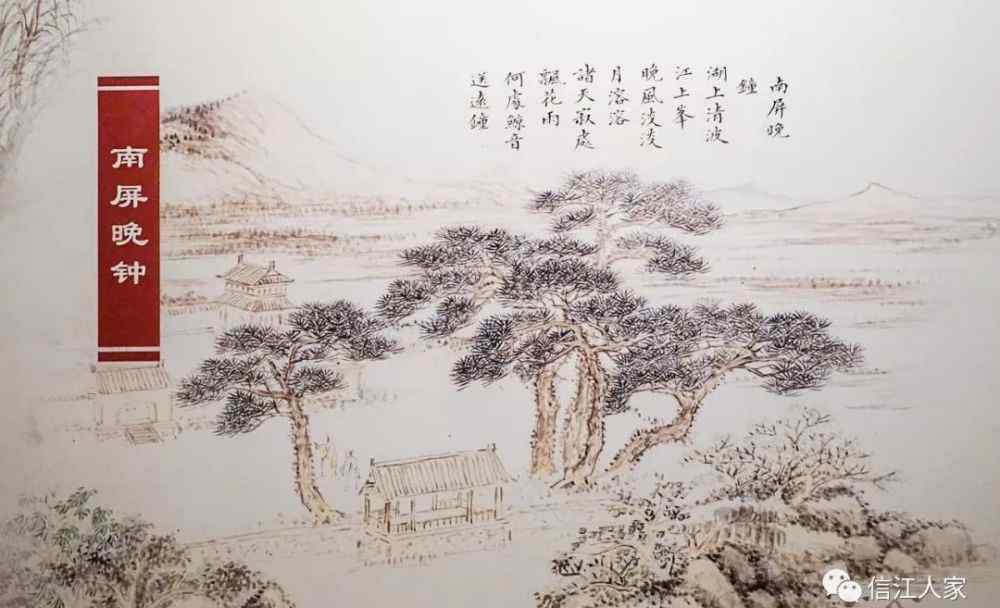 南屏晚
鐘
湖上清波
江上峯
晚風淡淡
月溶溶
諸天寂處
飄花雨
何處鯨音
送遠鐘
南屏晚钟
信江人家